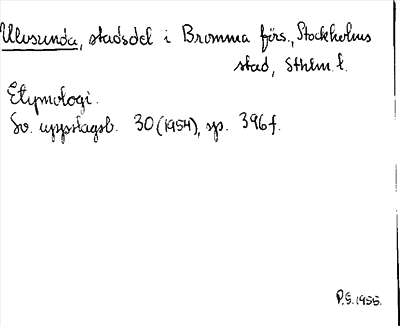 Ulvsunda, stadsdel i Bromma förs., Stockholms
stad, Sthlm. l.
Etymologi.
Sv. uppslagsb. 30 (1954), sp. 396 f.
P.G. 1955.